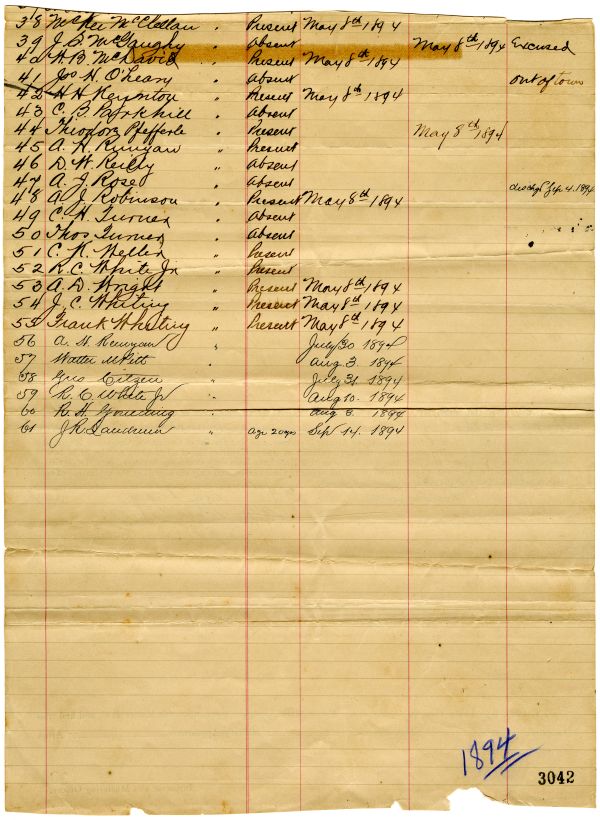 38 McKei McClellan " Present May 8th 1894
39 J. B. McGaughy " Absent May 8th 1894 Excused
40 H. B. McDavid " Present May 8th 1894
41 Jos H. O'Leary " Absent Out of town
42 H H. " Present May 8th 1894
43 C. B. Parkhill " Absent
44 Theodore Pfefferle " Present May 8th 1894
45 A. H. Runyan " Present
46 D. W. Reilly " Absent
47 A. J. Rose " Absent dischgd Sep 4. 1894
48 A. J. Robinson " Present May 8th 1894
49 C. H. Turner " Absent
50 Thos Turner " Absent
51 C. K. Weller " Present
52 R. C. White Jr " Present
53 A. D. Wright " Present May 8th 1894
54 J. C. Whiting " Present May 8th 1894
55 Frank Whiting " Present May 8th 1894
56 A. H. Runyan " July 30 1894
57 Walter " Aug 3. 1894
58 Geo Citzen " July 31 1894
59 R. C. White Jr " Aug 10. 1894
60 R. H. " Aug 8. 1894
61 J R. Landrum " age 20 yrs Sep 14. 1894
1894
3042